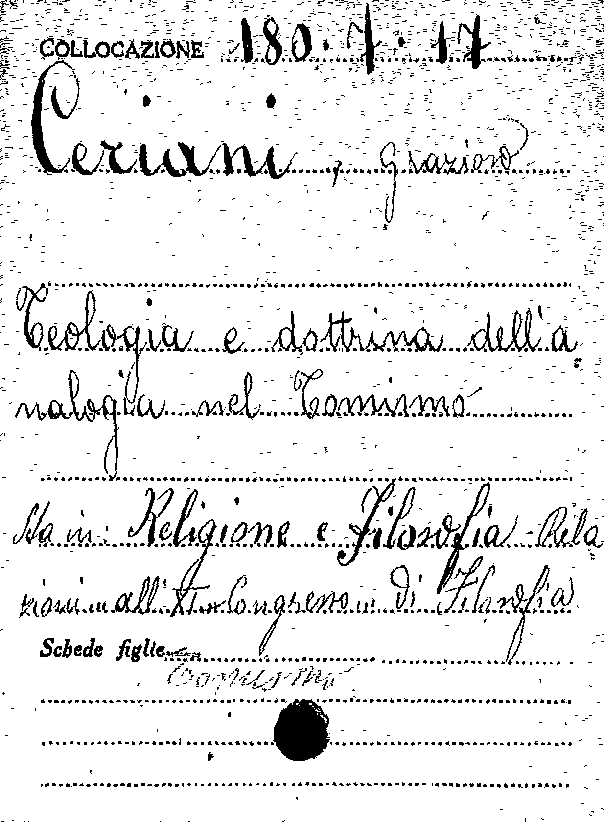 COLLOCAZIONE 180.7.17
Ceriani, Grazioso
Teologia e dottrina dell'a
nalogia nel Tomismo
Sta in: Religione e Filosofia - Rela
zioni all' XI Congresso di Filosofia
Schede figlie
Tomismo